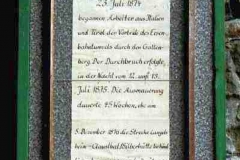 23. Juli 1874
begannen Arbeiter aus Italien
und Tirol der Vortrieb des Eisen-
bahntunnels durch den Gallen-
berg. Der Durchbruch erfolgte
in der Nacht vom 12. auf 13.
Juli 1875. Die Ausmauerung
dauerte 45 Wochen, ehe am
5. Dezember 1876 die Strecke
Clausthal